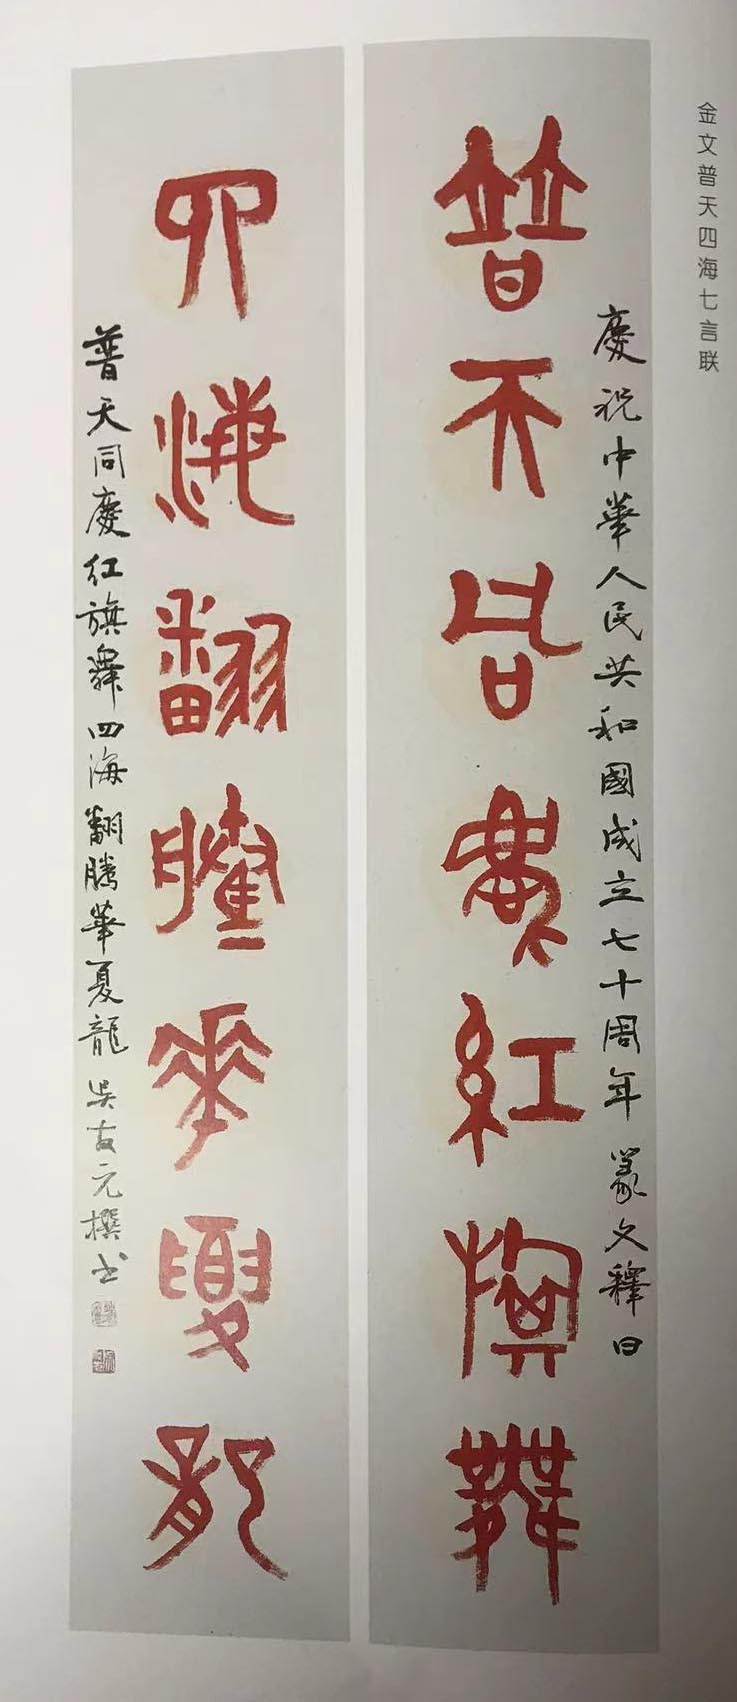 金文普天四海七言联
慶祝中華人民共和國成立七十周年 篆文釋曰
普天同慶紅旗舞
四海翻騰華夏龍
普天同慶红旗舞四海翻腾華夏龍 吴友元撰书